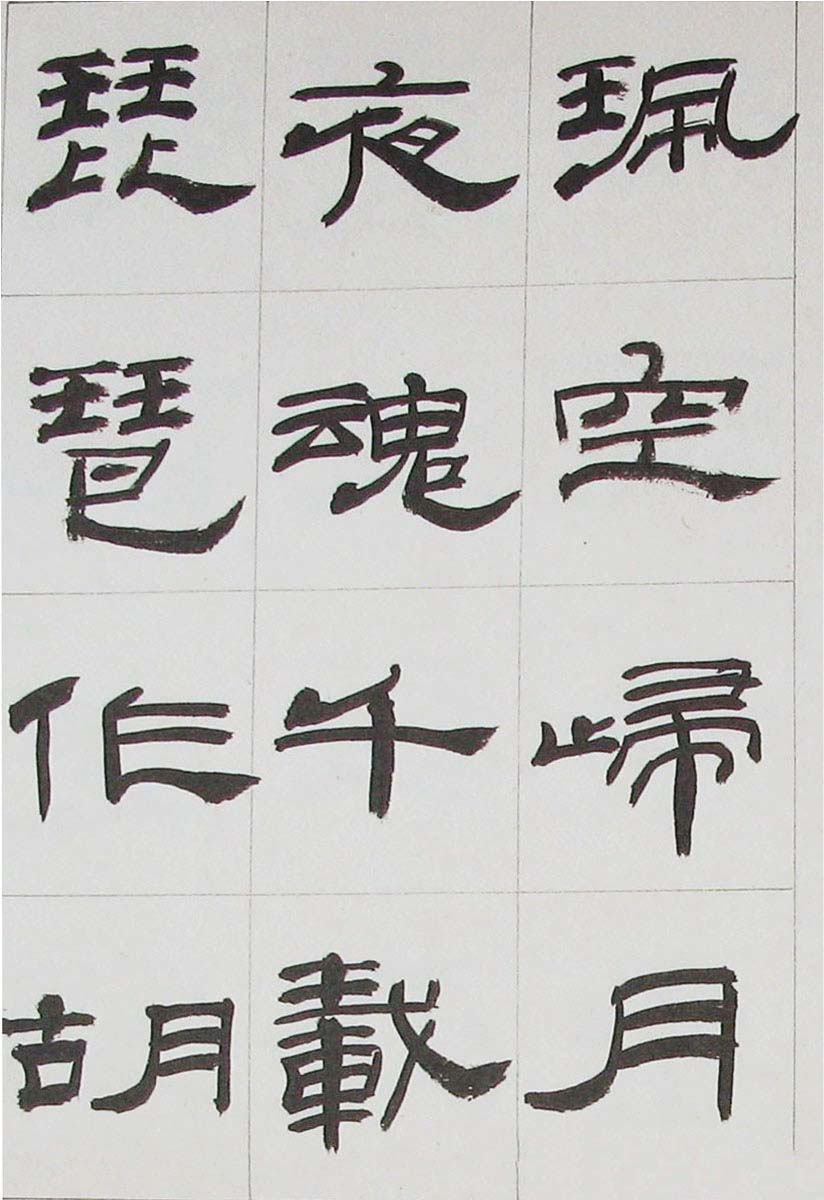 珮空歸月
夜魂千載
琵琶作胡